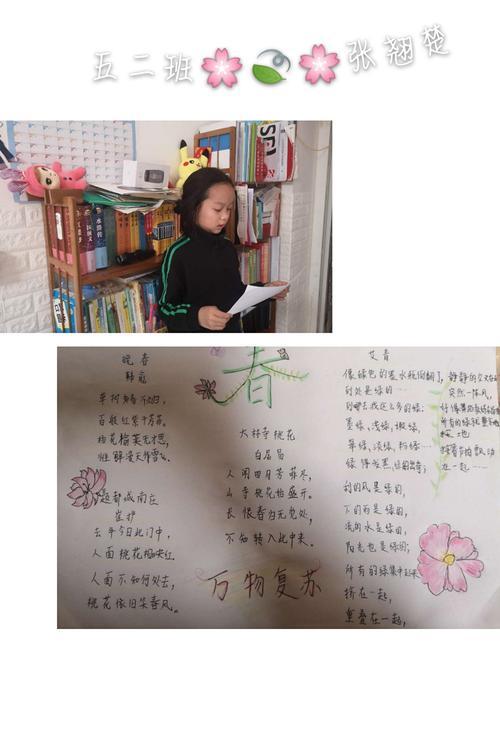 五二班🌸🍃🌸张翘楚
晚春
韩愈
草树知春不久归，
百般红紫斗芳菲。
杨花榆荚无才思，
惟解漫天作雪飞。
题都城南庄
崔护
去年今日此门中，
人面桃花相映红。
人面不知何处去，
桃花依旧笑春风。
春
大林寺桃花
白居易
人间四月芳菲尽，
山寺桃花始盛开。
长恨春归无觅处，
不知转入此中来。
万物复苏
艾青
像绿色的墨水瓶倒翻了，
到处是绿的……
到哪去找这么多的绿：
墨绿、浅绿、嫩绿、
翠绿、淡绿、粉绿……
绿得发黑、绿得出奇；
刮的风是绿的，
下的雨是绿的，
流的水是绿的，
阳光也是绿的；
所有的绿集中起来
挤在一起，
重叠在一起，
静静的交叉
突然一阵风，
好像舞蹈教练在指挥
所有的绿就整齐
按着节拍飘动
在一起……